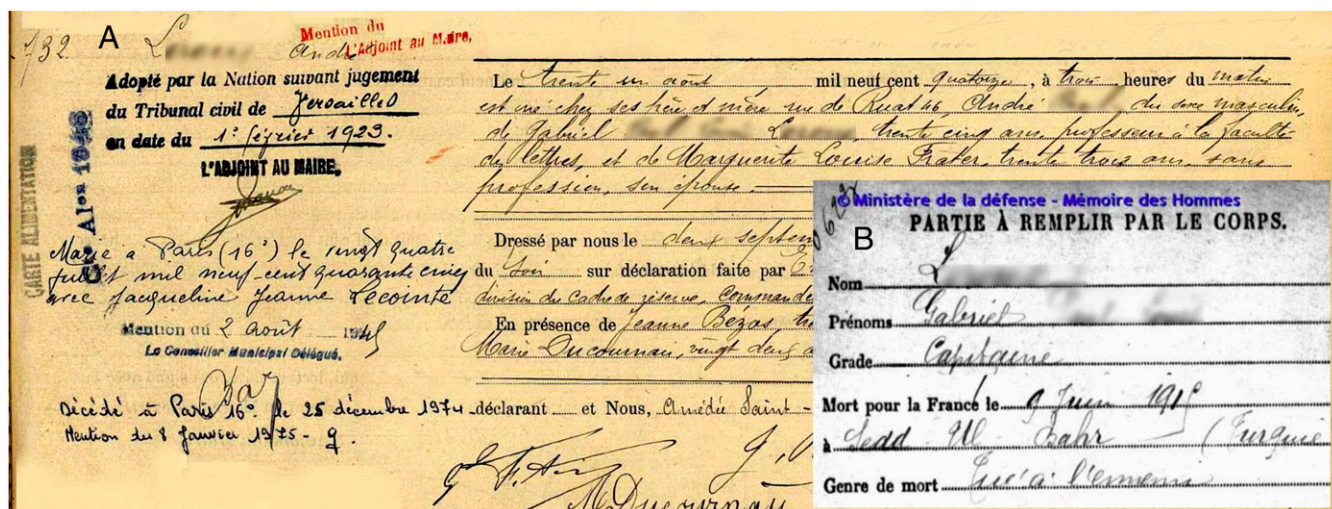 732
A
L
André
Mention du
L'Adjoint au Maire,
Adopté par la Nation suivant jugement
du Tribunal civil de Versailles
en date du 1er février 1923.
L'ADJOINT AU MAIRE,
CARTE ALIMENTATION
Marié à Paris (16e) le vingt quatre
juillet mil neuf cent quarante cinq
avec Jacqueline Jeanne Lecointe
Mention du 2 août 1945
Le Conseiller Municipal Délégué,
Décédé à Paris 16e le 25 décembre 1974
Mention du 8 Janvier 1975 - g.
Le trente un août mil neuf cent quatorze, à trois heures du matin
est né chez ses père et mère rue de Ruat 46, André du sexe masculin,
de Gabriel trente cinq ans professeur à la faculté
des lettres, et de Marguerite Louise Frater, trente trois ans, sans
profession, son épouse.
Dressé par nous le deux septem
du soir sur déclaration faite par
division du cadre de réserve, commande
En présence de Jeanne Bézos,
Marie Ducournau, vingt deux a
déclarant et Nous, Amédée Saint-
Ducournau
© Ministère de la défense - Mémoire des Hommes
PARTIE À REMPLIR PAR LE CORPS.
B
Nom L
Prénoms Gabriel
Grade Capitaine
Mort pour la France le 9 Juin 1915
à Sedd-Ul-Bahr (Turquie
Genre de mort Tué à l'ennemi